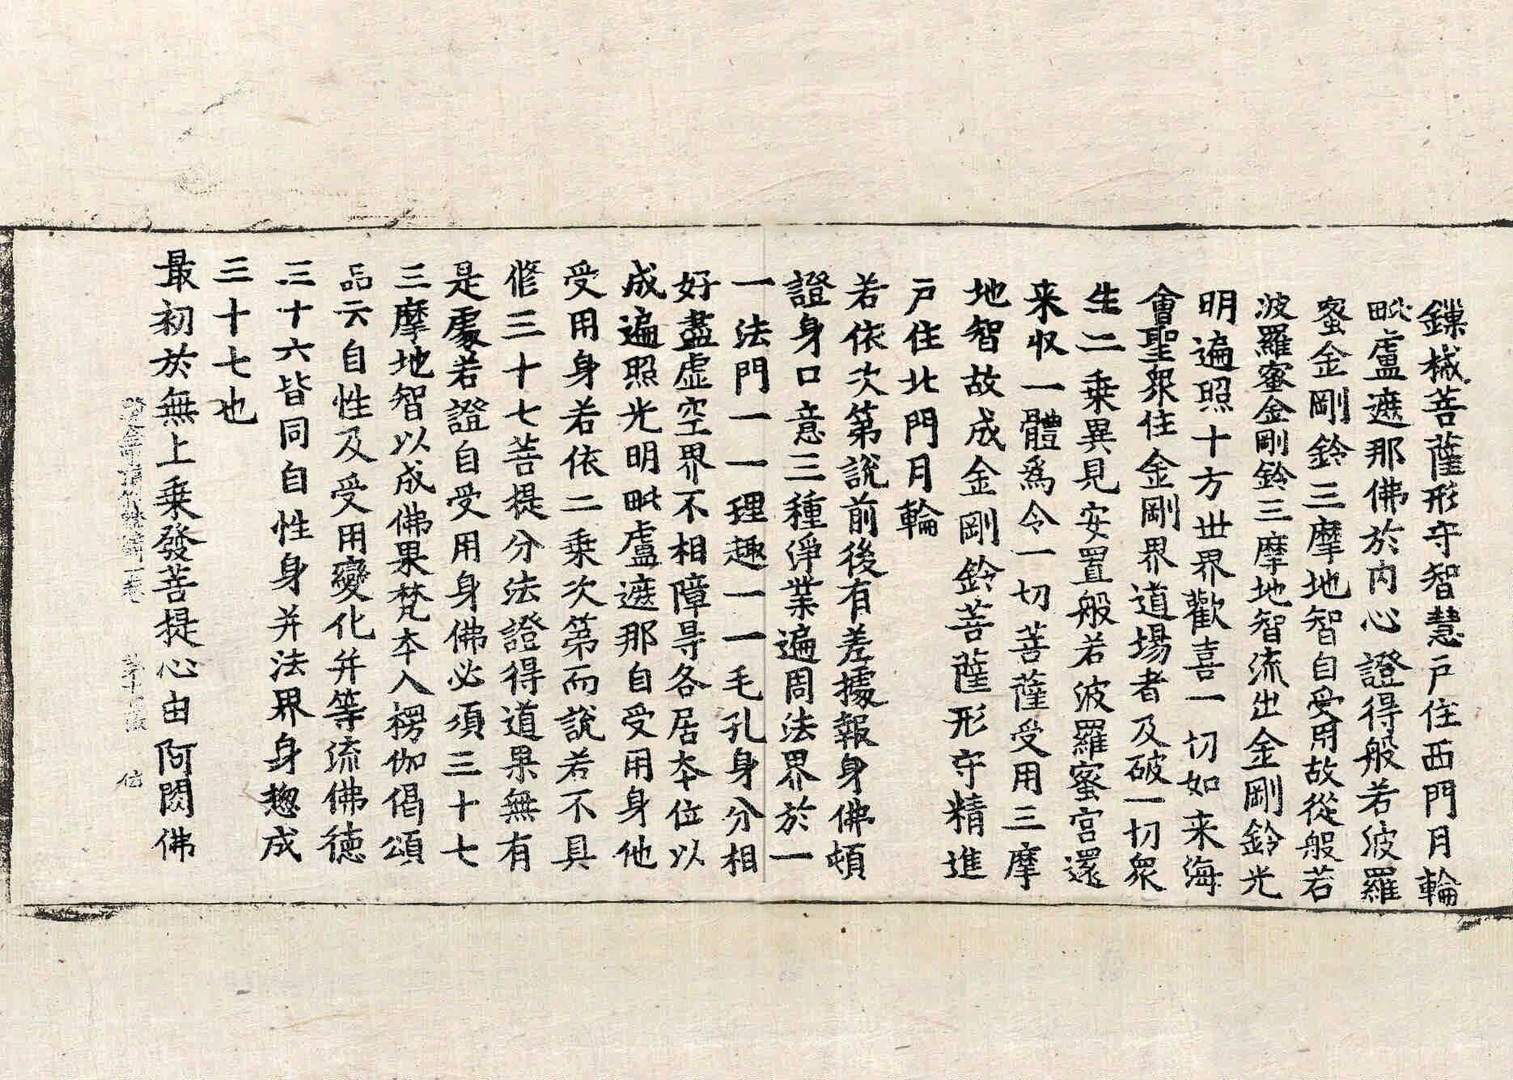 鏁械菩薩形守智慧戸住西門月輪
毗盧遮那佛於内心證得般若波羅
蜜金剛鈴三摩地智自受用故從般若
波羅蜜金剛鈴三摩地智流出金剛鈴光
明遍照十方世界歡喜一切如来海
會聖衆住金剛界道場者及破一切衆
生二乗異見安置般若波羅蜜宮還
来収一體爲令一切菩薩受用三摩
地智故成金剛鈴菩薩形守精進
戸住北門月輪
若依次第說前後有差據報身佛頓
證身口意三種淨業遍周法界於一
一法門一一理趣一一毛孔身分相
好盡虚空界不相障㝵各居夲位以
成遍照光明毗盧遮那自受用身他
受用身若依二乗次第而說若不具
修三十七菩提分法證得道果無有
是處若證自受用身佛必須三十七
三摩地智以成佛果梵夲入楞伽偈頌
品云自性及受用變化并等流佛徳
三十六皆同自性身并法界身揔成
三十七也
最初於無上乗發菩提心由阿閦佛